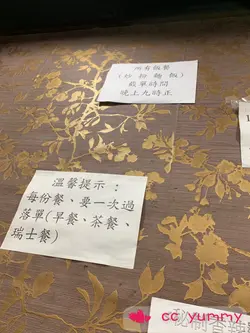 所有飯餐
(炒粉麵飯)
截單時間
晚上九時正
溫馨提示：
每份餐、要一次過
落單(早餐、茶餐、
瑞士餐)
秘制香辣
cc yummy